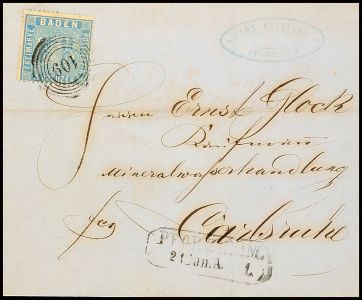 BADEN
FREIMARKE
109
Herrn Ernst Glock
Kaufmann
Mineralwasserhandlung
Carlsruhe
PFORZHEIM.
21 Jun. A. 1.